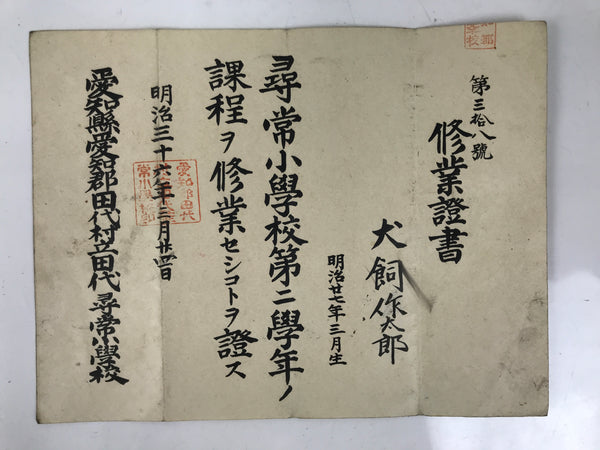 第三拾八號
修業證書
犬飼作太郎
明治廿七年三月生
尋常小學校第二學年ノ
課程ヲ修業セシコトヲ證ス
明治三十六年三月廿四日
愛知縣愛知郡田代村立田代尋常小學校